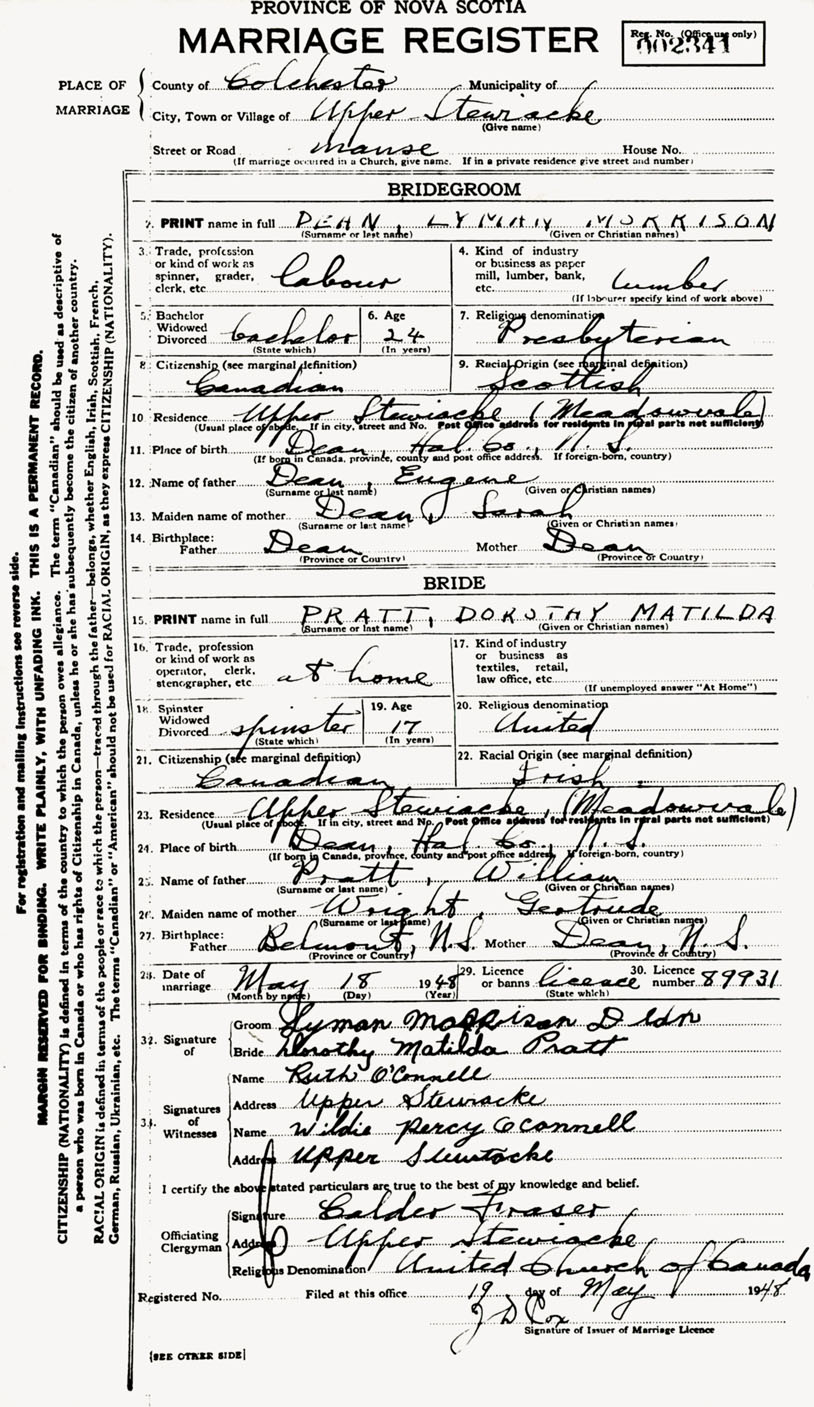 PROVINCE OF NOVA SCOTIA
MARRIAGE REGISTER
Reg. No. (Office use only)
002341
PLACE OF MARRIAGE
County of Colchester Municipality of
City, Town or Village of Upper Stewiacke
(Give name)
Street or Road manse House No.
(If marriage occurred in a Church, give name. If in a private residence give street and number)
BRIDEGROOM
2. PRINT name in full DEAN, LYMAN MORRISON
(Surname or last name) (Given or Christian names)
3. Trade, profession or kind of work as spinner, grader, clerk, etc. labour
4. Kind of industry or business as paper mill, lumber, bank, etc. lumber
(If labourer specify kind of work above)
5. Bachelor Widowed Divorced bachelor
(State which)
6. Age 24
(In years)
7. Religious denomination Presbyterian
8. Citizenship (see marginal definition) Canadian
9. Racial Origin (see marginal definition) Scottish
10. Residence Upper Stewiacke (Meadowvale)
(Usual place of abode. If in city, street and No. Post Office address for residents in rural parts not sufficient)
11. Place of birth Dean, Hal. Co., N. S.
(If born in Canada, province, county and post office address. If foreign-born, country)
12. Name of father Dean, Eugene
(Surname or last name) (Given or Christian names)
13. Maiden name of mother Dean, Sarah
(Surname or last name) (Given or Christian names)
14. Birthplace: Father Dean Mother Dean
(Province or Country) (Province or Country)
BRIDE
15. PRINT name in full PRATT, DOROTHY MATILDA
(Surname or last name) (Given or Christian names)
16. Trade, profession or kind of work as operator, clerk, stenographer, etc. at home
17. Kind of industry or business as textiles, retail, law office, etc.
(If unemployed answer "At Home")
18. Spinster Widowed Divorced spinster
(State which)
19. Age 17
(In years)
20. Religious denomination United
21. Citizenship (see marginal definition) Canadian
22. Racial Origin (see marginal definition) Irish.
23. Residence Upper Stewiacke, (Meadowvale)
(Usual place of abode. If in city, street and No. Post Office address for residents in rural parts not sufficient)
24. Place of birth Dean, Hal Co., N. S.
(If born in Canada, province, county and post office address. If foreign-born, country)
25. Name of father Pratt, William
(Surname or last name) (Given or Christian names)
26. Maiden name of mother Wright, Gertrude
(Surname or last name) (Given or Christian names)
27. Birthplace: Father Belmont, N.S. Mother Dean, N.S.
(Province or Country) (Province or Country)
28. Date of marriage May 18 1948
(Month by name) (Day) (Year)
29. Licence or banns licence
(State which)
30. Licence number 89931
32. Signature of
Groom Lyman Morrison Dean
Bride Dorothy Matilda Pratt
34. Signatures of Witnesses
Name Ruth O'Connell
Address Upper Stewiacke
Name Wildie Percy Oconnell
Address Upper Stewiacke
I certify the above stated particulars are true to the best of my knowledge and belief.
Officiating Clergyman
Signature Calder Fraser
Address Upper Stewiacke
Religious Denomination United Church of Canada
Registered No. Filed at this office 19 day of May 1948
Cox
Signature of Issuer of Marriage Licence
[SEE OTHER SIDE]
For registration and mailing instructions see reverse side.
MARGIN RESERVED FOR BINDING. WRITE PLAINLY, WITH UNFADING INK. THIS IS A PERMANENT RECORD.
CITIZENSHIP (NATIONALITY) is defined in terms of the country to which the person owes allegiance. The term "Canadian" should be used as descriptive of
a person who was born in Canada or who has rights of Citizenship in Canada, unless he or she has subsequently become the citizen of another country.
RACIAL ORIGIN is defined in terms of the people or race to which the person—traced through the father—belongs, whether English, Irish, Scottish, French,
German, Russian, Ukrainian, etc. The terms "Canadian" or "American" should not be used for RACIAL ORIGIN, as they express CITIZENSHIP (NATIONALITY).